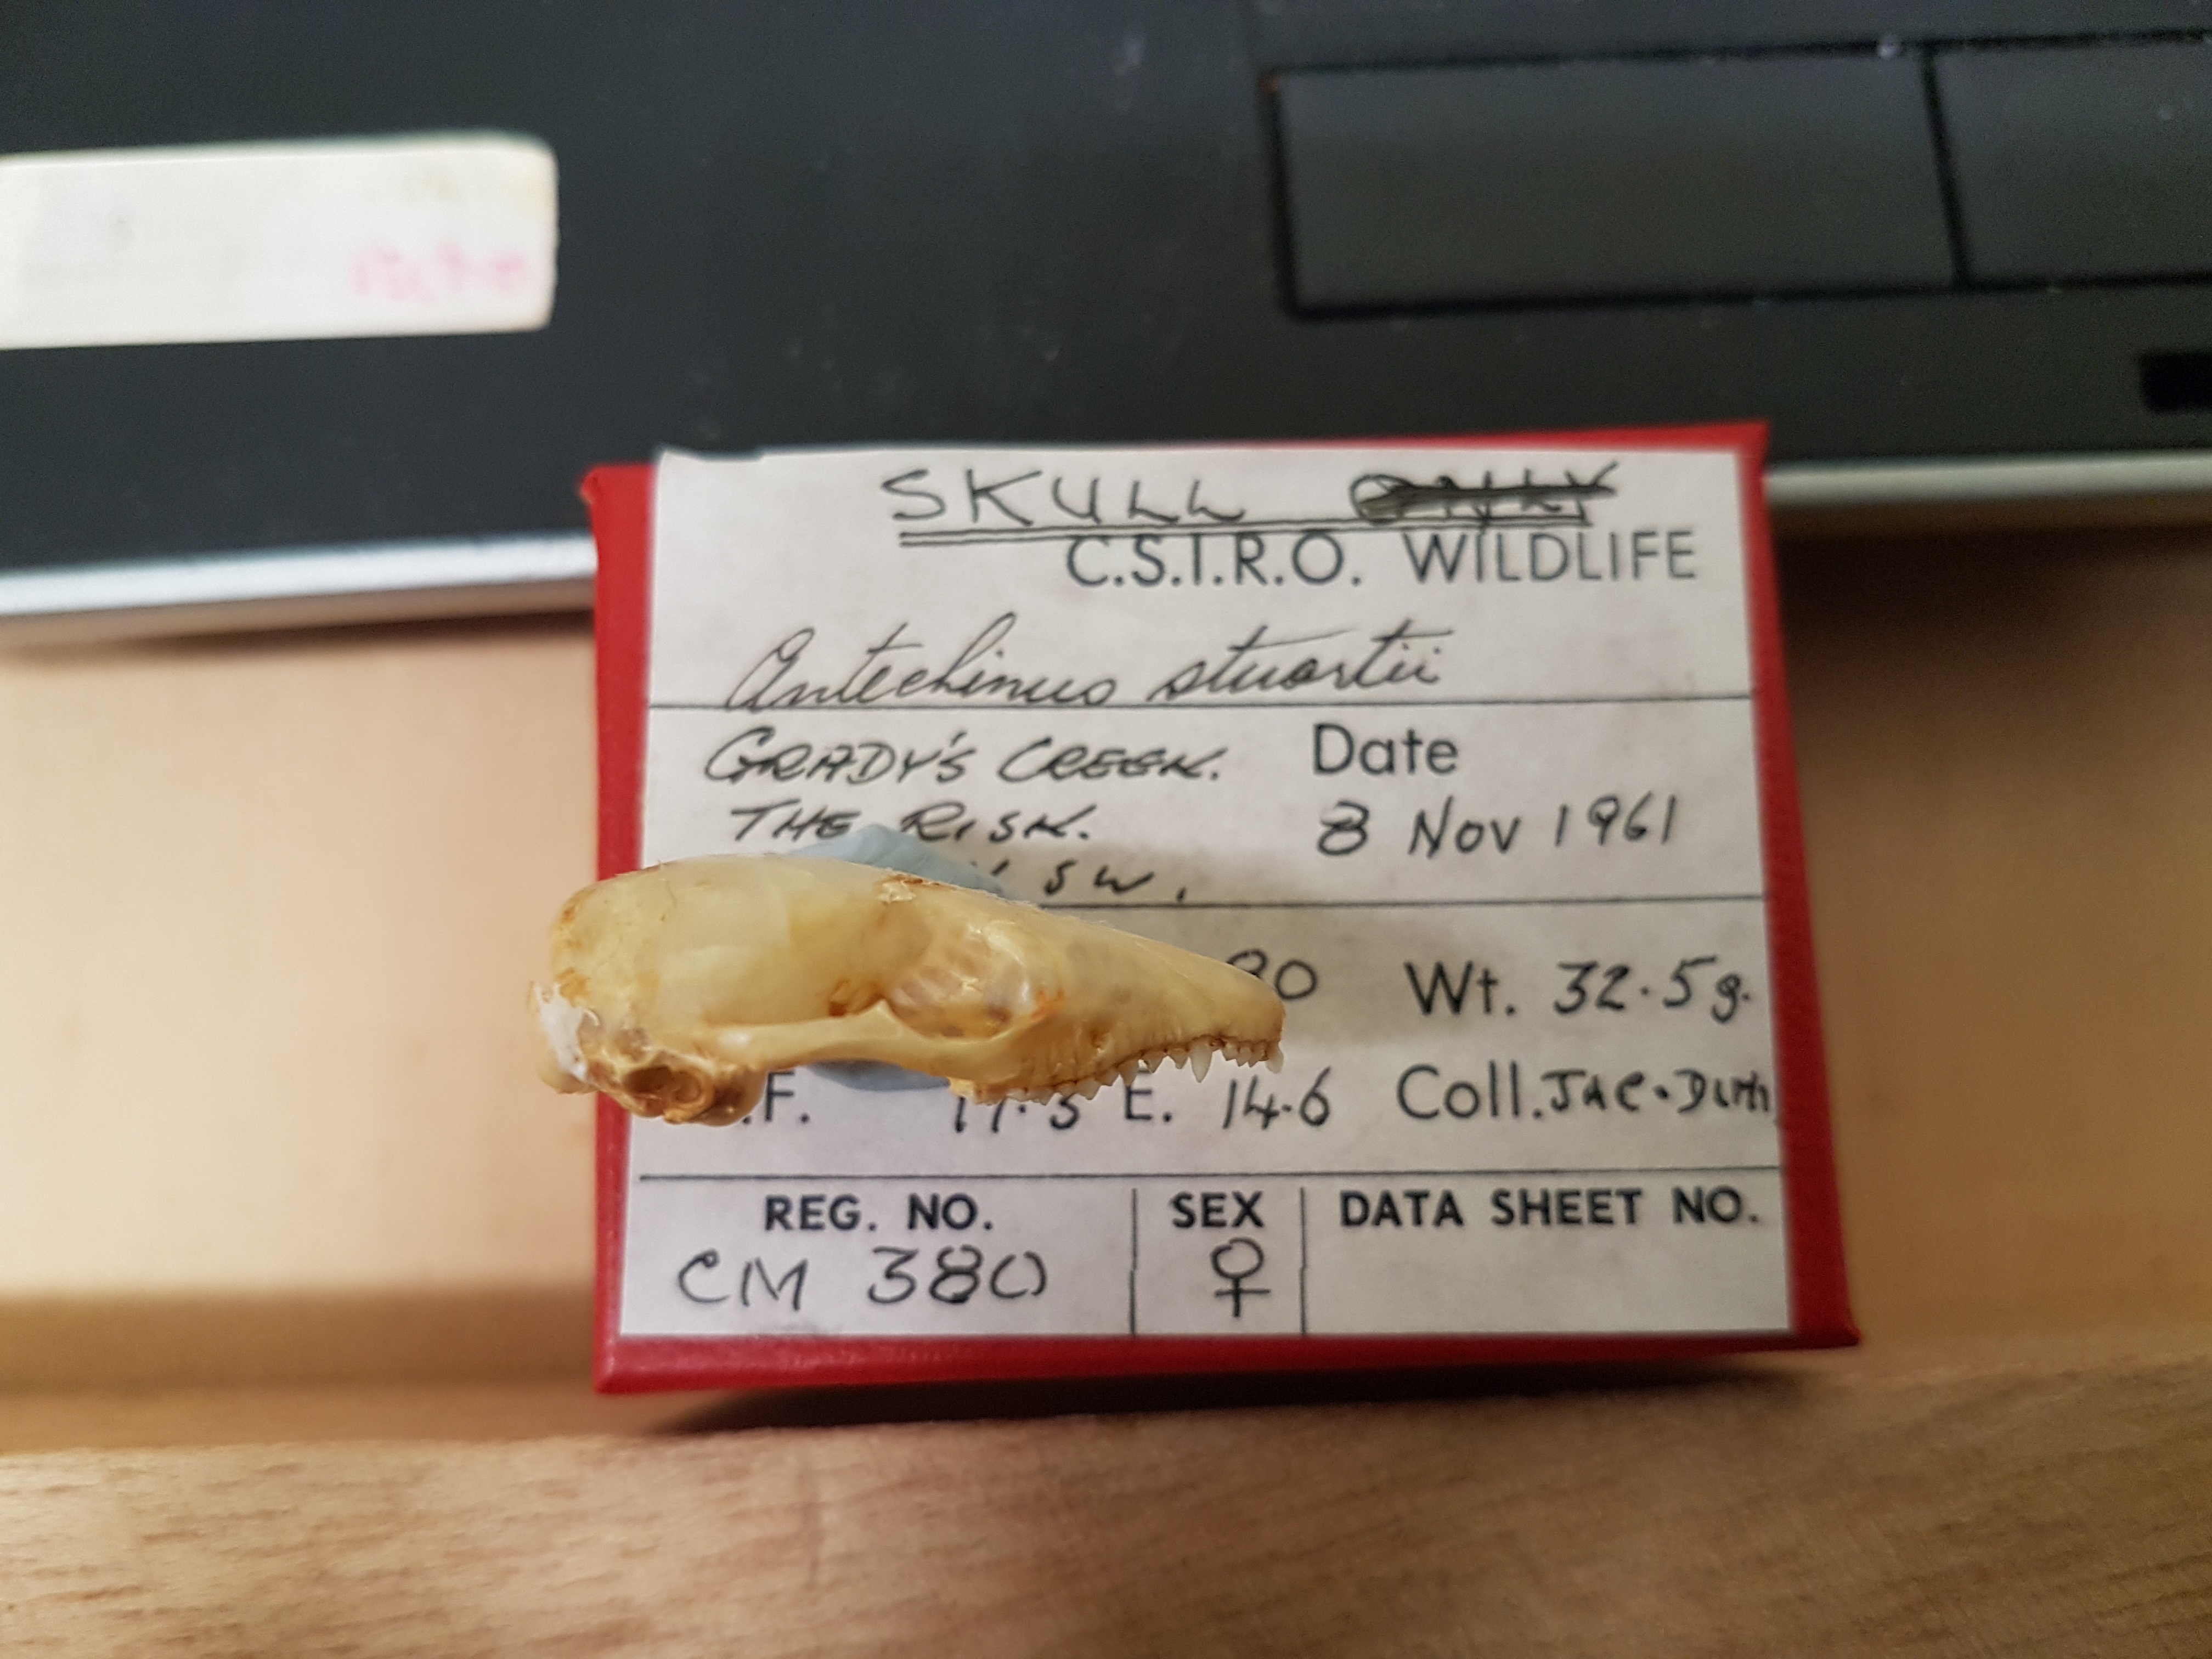 SKULL ONLY
C.S.I.R.O. WILDLIFE
Antechinus stuartii
GRADY'S CREEK. Date
THE RISK. 8 Nov 1961
SW.
90 Wt. 32.5g.
.F. E. 14.6 Coll.
REG. NO. SEX DATA SHEET NO.
CM 380 ♀